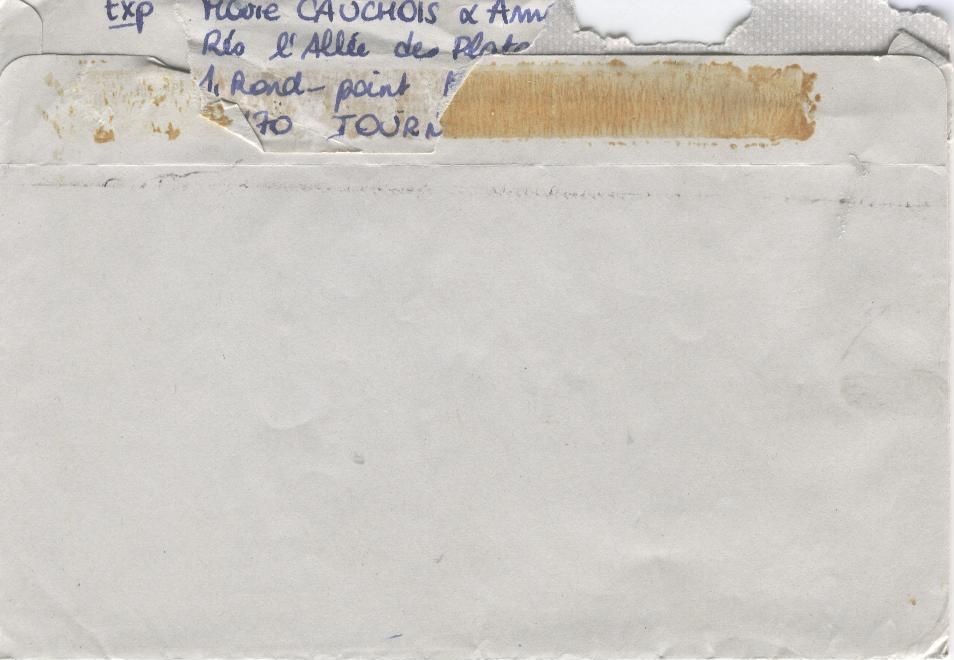 Exp Marie CAUCHOIS & Ann
Rés l'Allée des Plata
1, Rond-point
70 TOURN